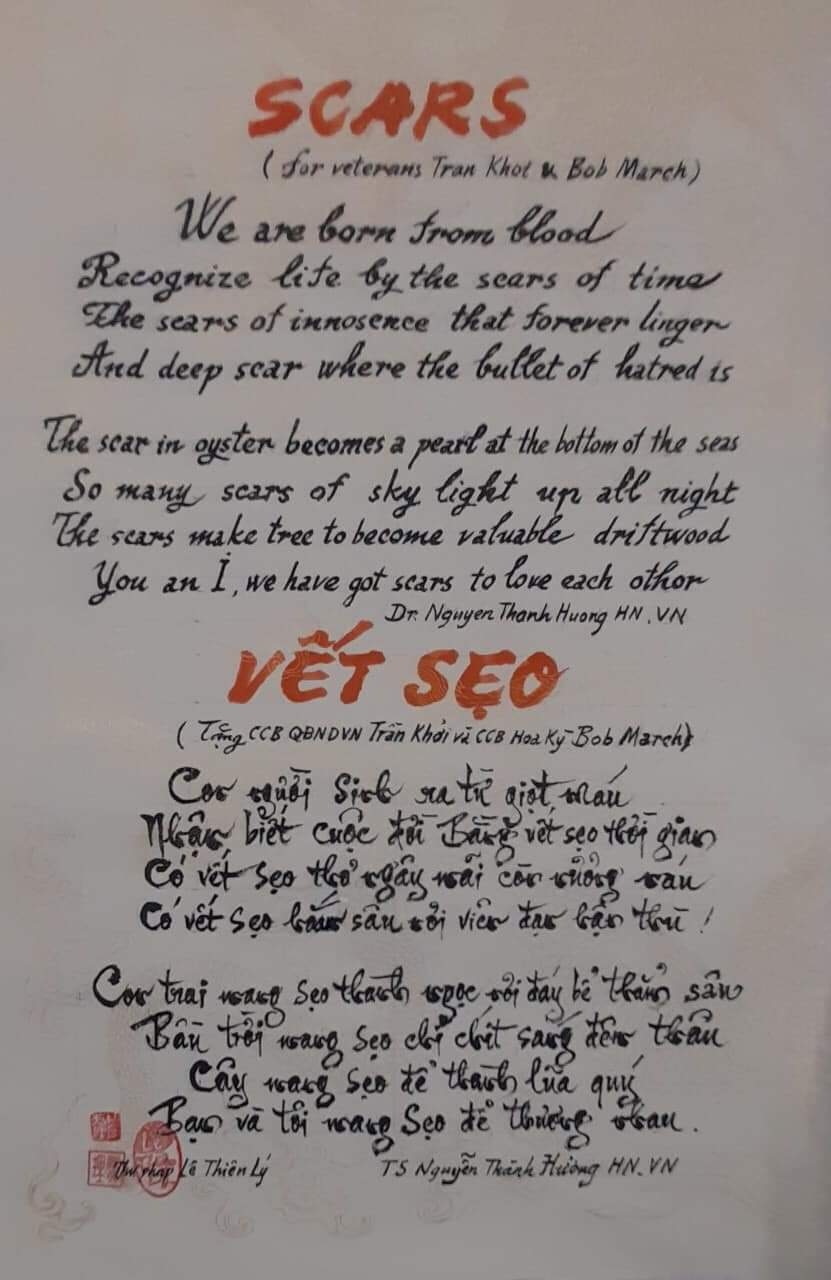 SCARS
(for veterans Tran Khoi & Bob March)
We are born from blood
Recognize life by the scars of time
The scars of innosence that forever linger
And deep scar where the bullet of hatred is
The scar in oyster becomes a pearl at the bottom of the seas
So many scars of sky light up all night
The scars make tree to become valuable driftwood
You an I, we have got scars to love each othor
Dr. Nguyen Thanh Huong HN.VN
VẾT SẸO
(Tặng CCB QĐNDVN Trần Khởi và CCB Hoa Kỳ Bob March)
Con người sinh ra từ giọt máu
Nhận biết cuộc đời Bằng vết sẹo thời gian
Có vết sẹo thơ ngây mãi còn nương náu
Có vết sẹo hằn sâu nơi viên đạn hận thù !
Con trai mang sẹo thành ngọc nơi đáy bể thẳm sâu
Bầu trời mang sẹo chi chít sáng đêm thâu
Cây mang sẹo để thành lũa quý
Bạn và tôi mang sẹo để thương nhau.
Thư pháp Lê Thiên Lý
TS Nguyễn Thành Hưởng HN.VN